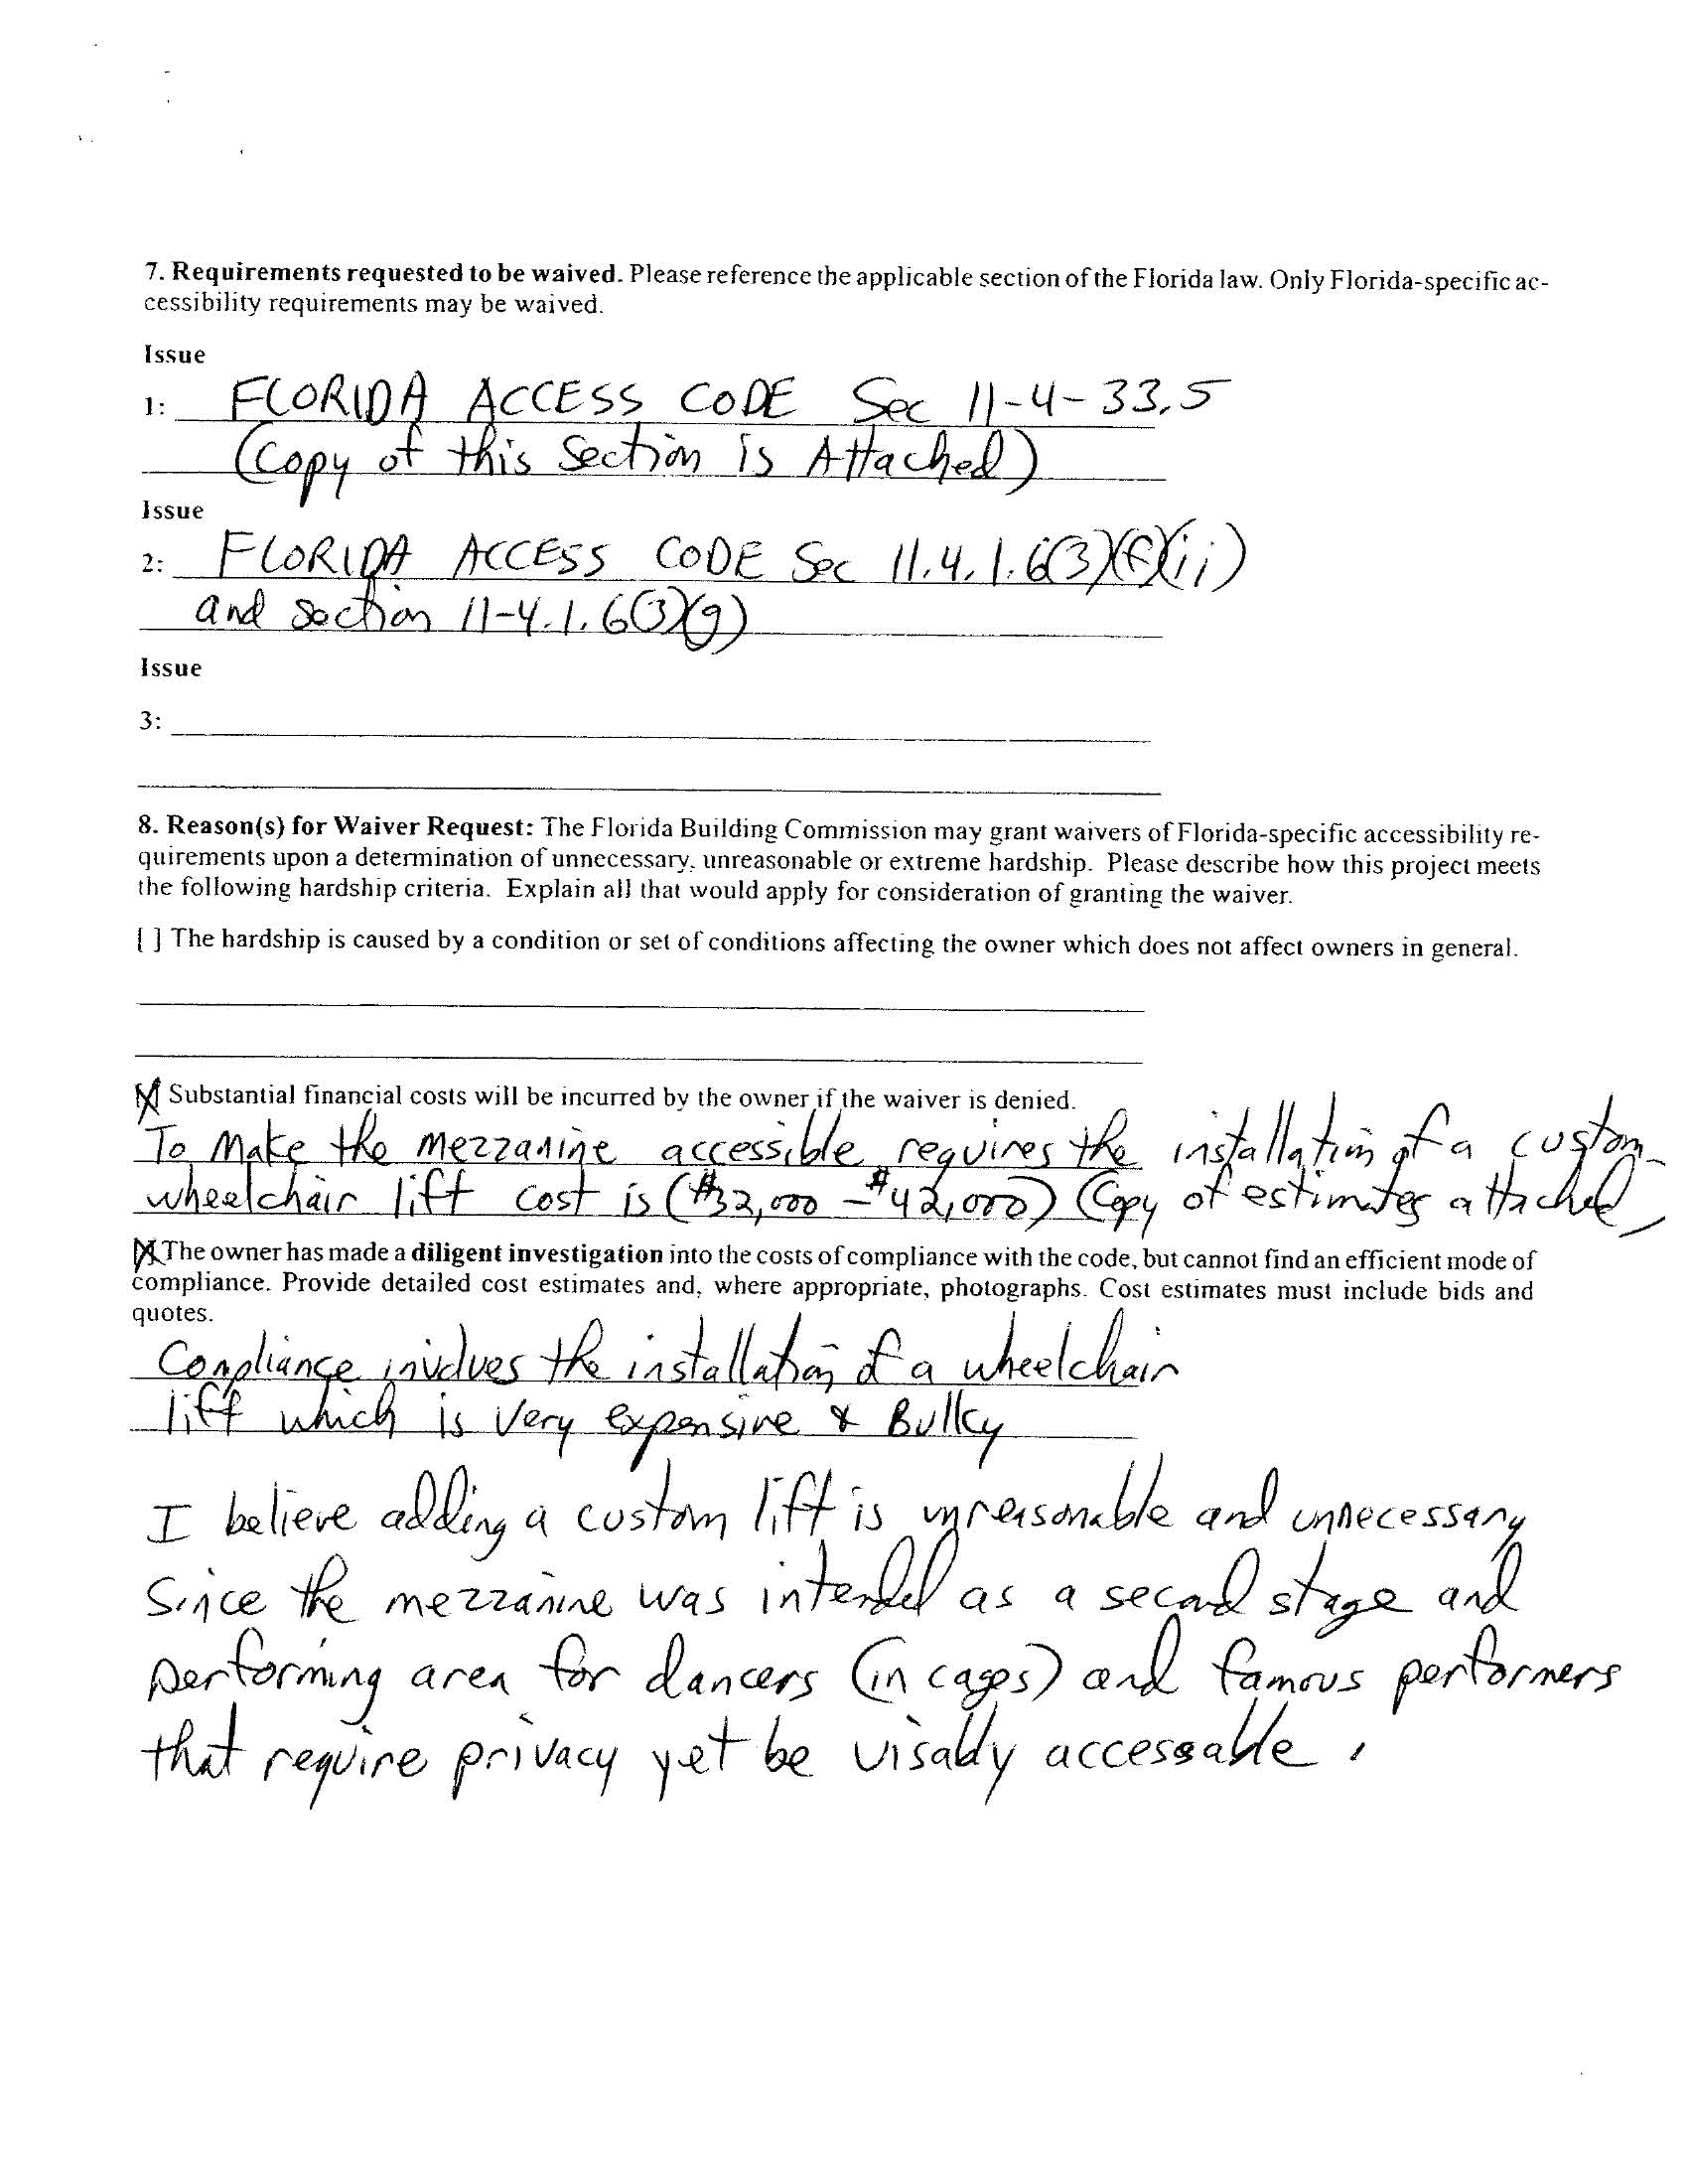 7. Requirements requested to be waived. Please reference the applicable section of the Florida law. Only Florida-specific ac-
cessibility requirements may be waived.
Issue
1: FLORIDA ACCESS CODE Sec 11-4-33.5
(Copy of this Section is Attached)
Issue
2: FLORIDA ACCESS CODE Sec 11.4.1.6(3)(f)(ii)
and section 11-4.1.6(3)(g)
Issue
3:
8. Reason(s) for Waiver Request: The Florida Building Commission may grant waivers of Florida-specific accessibility re-
quirements upon a determination of unnecessary, unreasonable or extreme hardship. Please describe how this project meets
the following hardship criteria. Explain all that would apply for consideration of granting the waiver.
[ ] The hardship is caused by a condition or set of conditions affecting the owner which does not affect owners in general.
[X] Substantial financial costs will be incurred by the owner if the waiver is denied.
To Make the mezzanine accessible requires the installation of a custom
wheelchair lift cost is ($32,000 - $42,000) (Copy of estimates attached)
[X] The owner has made a diligent investigation into the costs of compliance with the code, but cannot find an efficient mode of
compliance. Provide detailed cost estimates and, where appropriate, photographs. Cost estimates must include bids and
quotes.
Compliance involves the installation of a wheelchair
lift which is very expensive & Bulky
I believe adding a custom lift is unreasonable and unnecessary
Since the mezzanine was intended as a second stage and
performing area for dancers (in cages) and famous performers
that require privacy yet be visably accessable.